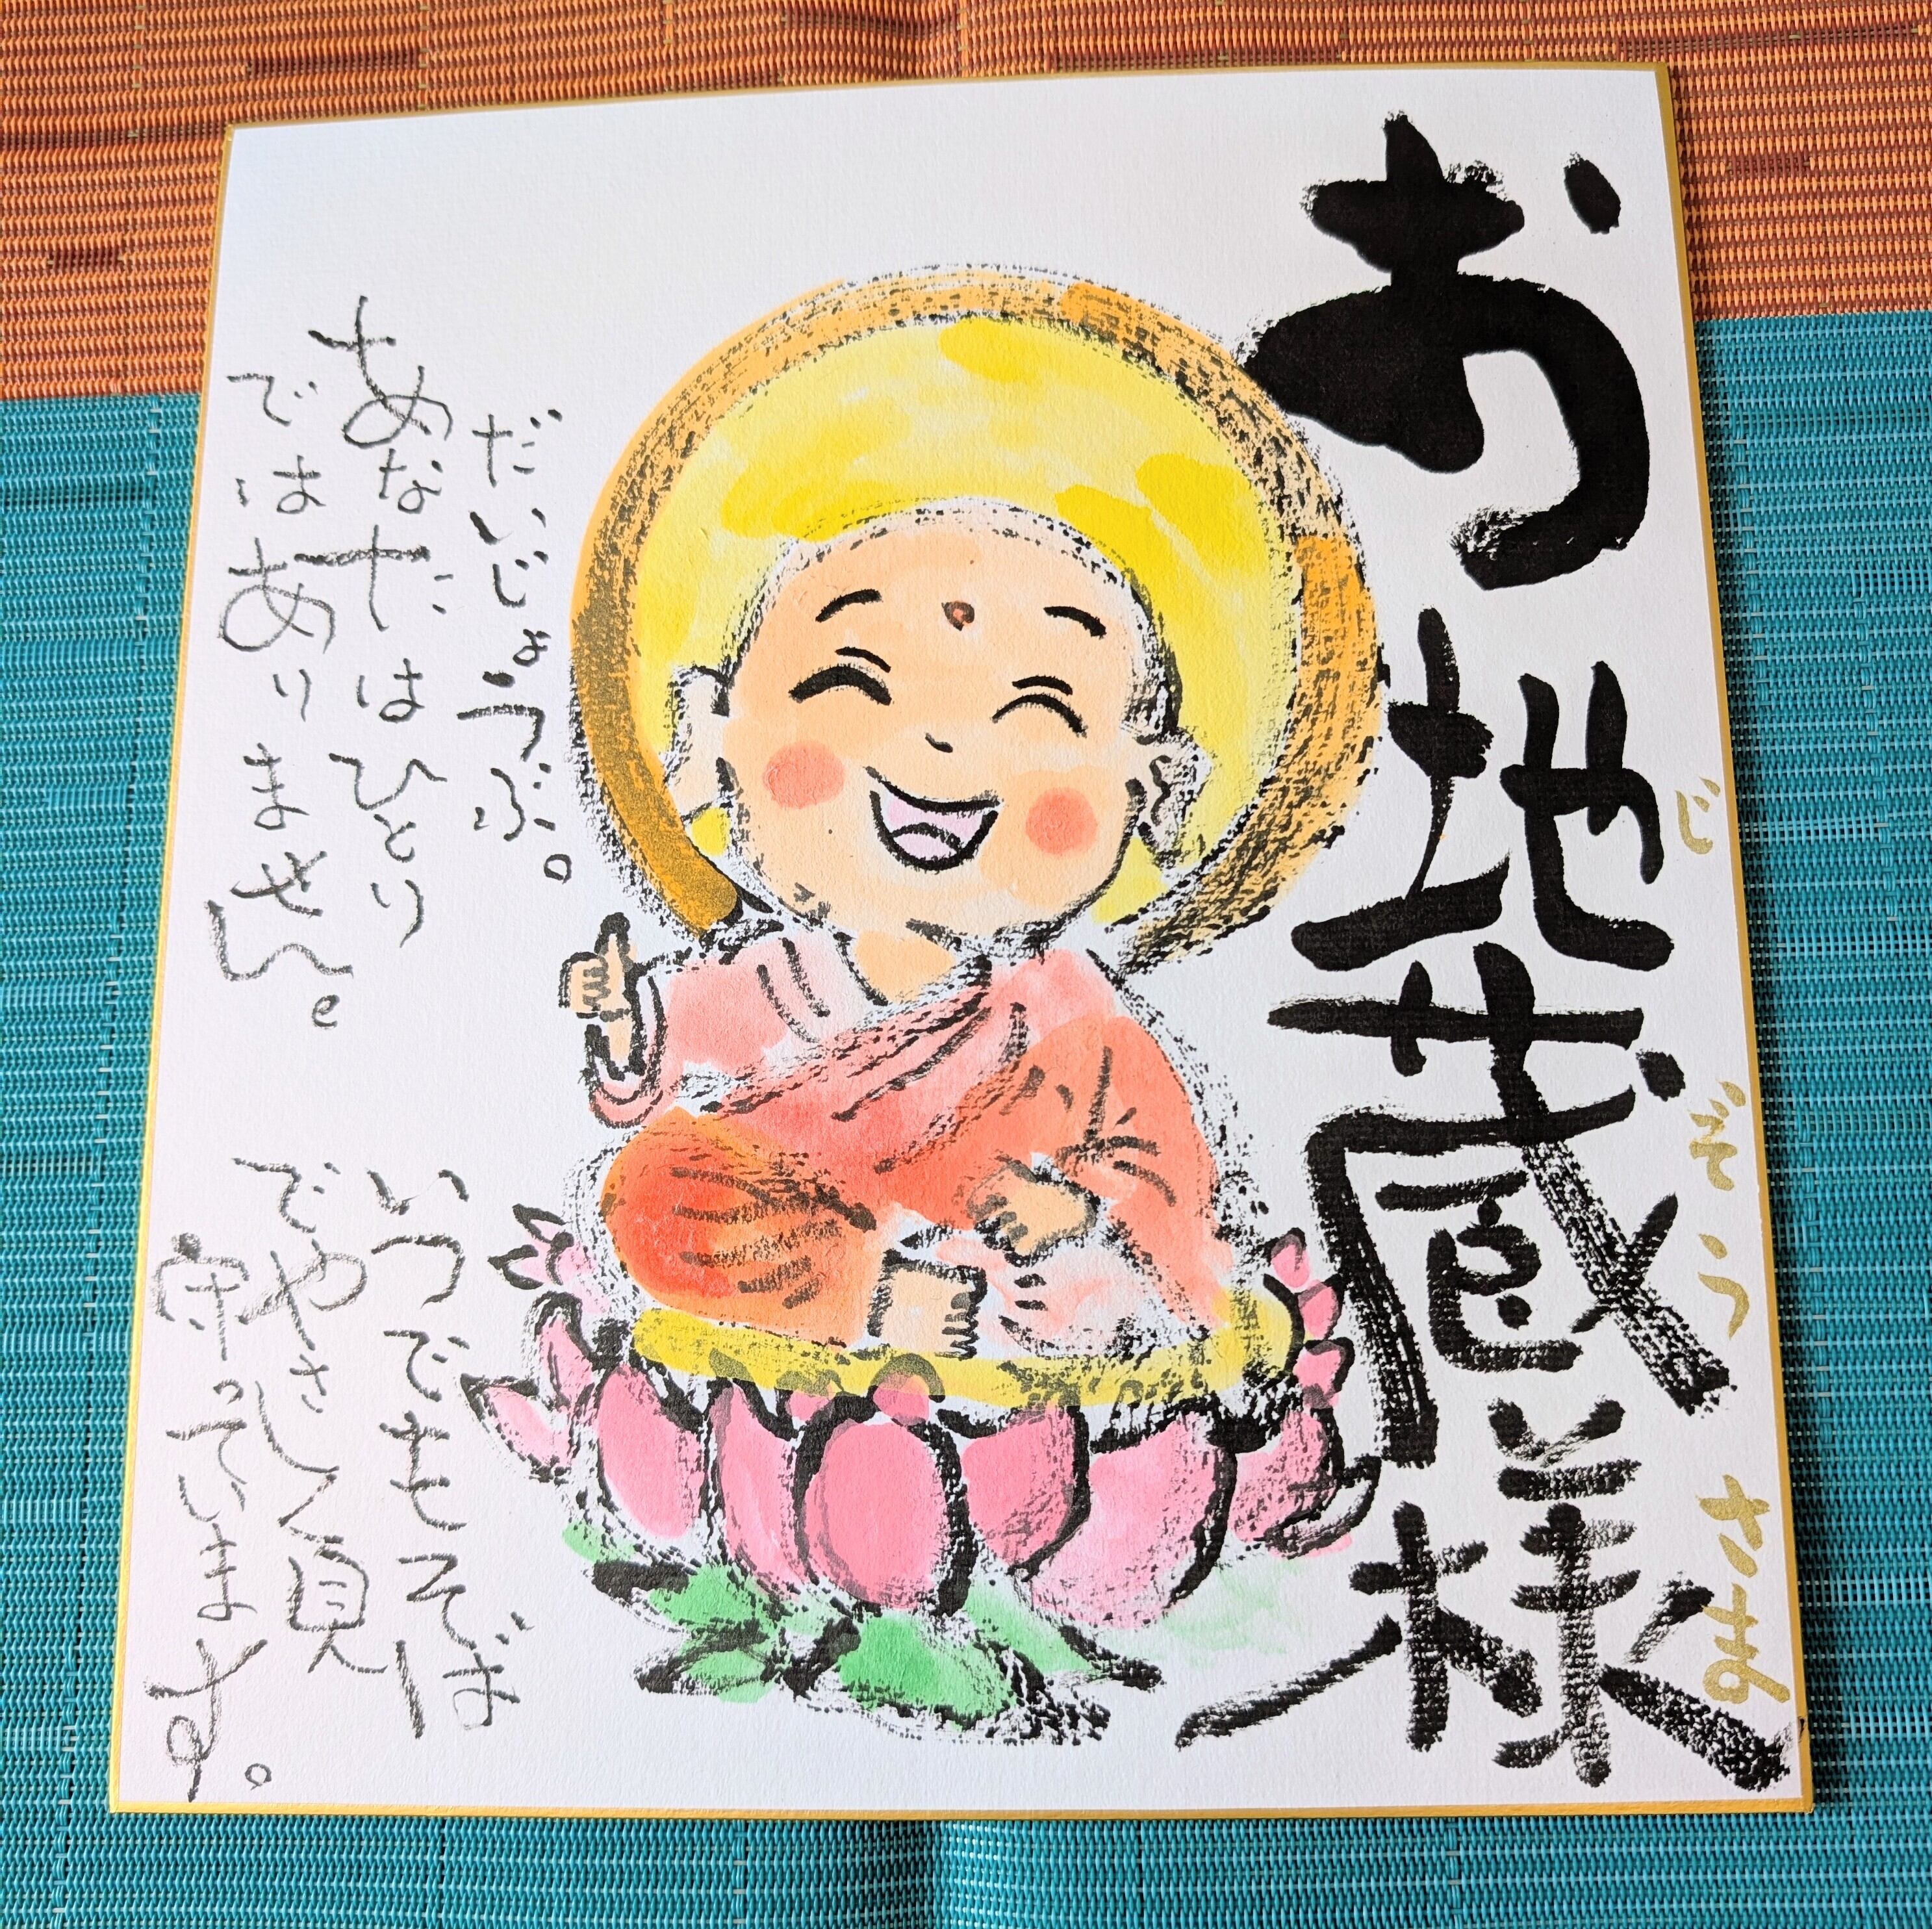 お地蔵様
じぞうさま
だいじょうぶ。
あなたはひとり
ではありません。
いつでもそば
でやさしく見
守っています。